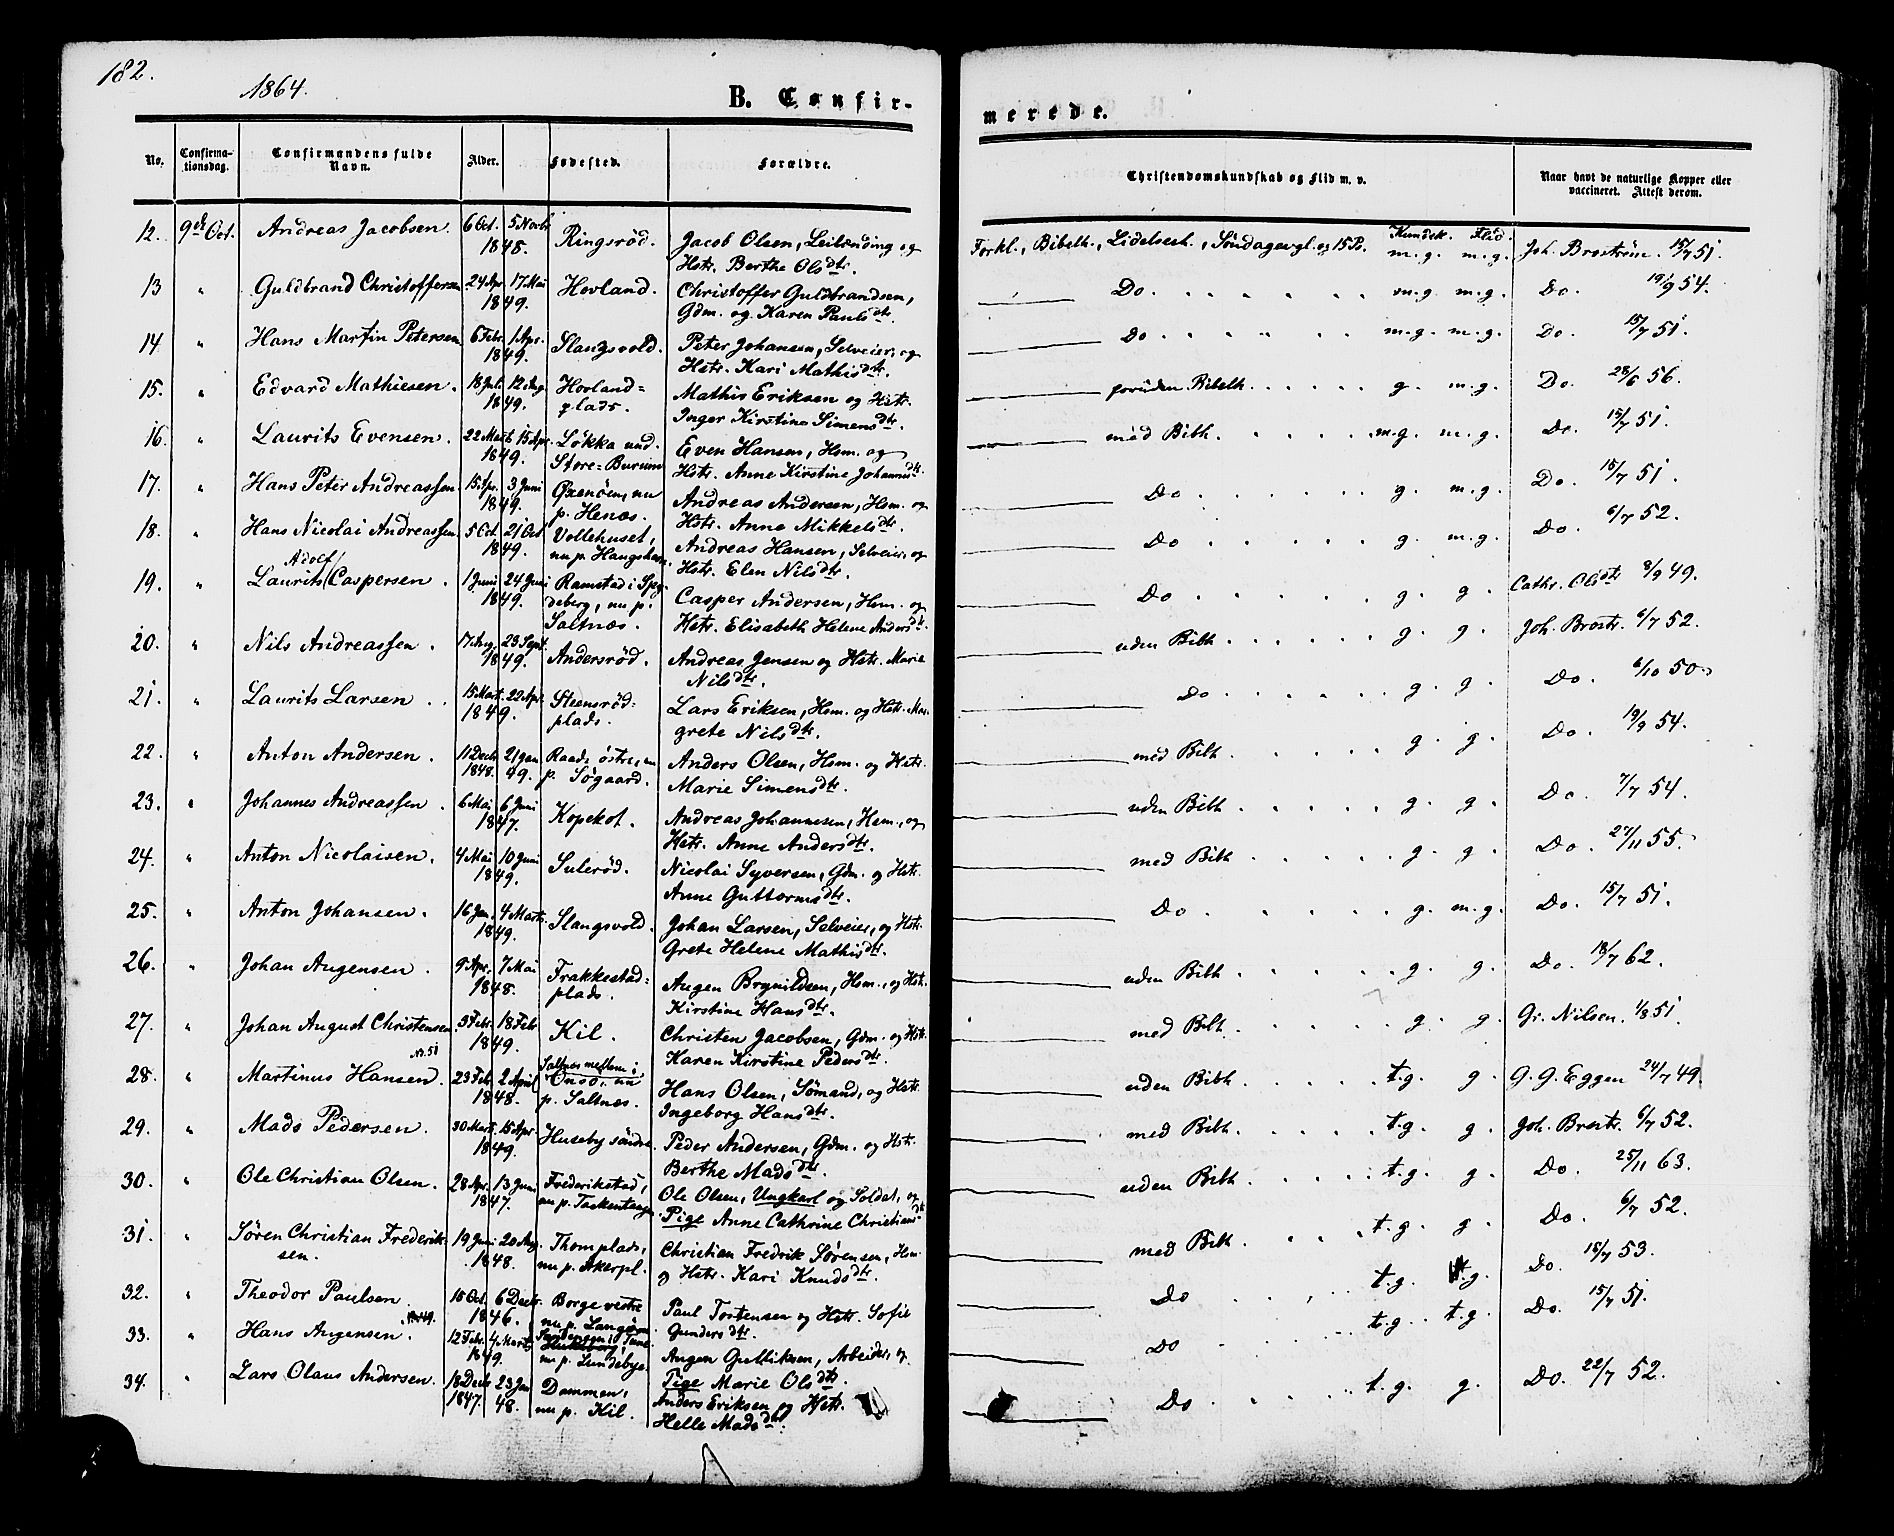 182.
1864.
B. Confir-
merede.
No.
Confirma-
tionsdag.
Confirmandens fulde
Navn.
Alder.
Fødested.
Forældre.
Christendomskundskab og Flid m. v.
Naar havt de naturlige Kopper eller
vaccineret. Attest derom.
12. 9de Oct. Andreas Jacobsen. 6 Oct. 5 Novbr 1848. Ringsrød. Jacob Olsen, Leilænding og
Hstr. Berthe Olsdtr. Forkl., Bibelh., Lidelsesh., Søndagsevgl. og 15 Ps. Kundsk. m.g. Flid. m.g. Joh. Broström. 15/7 51.
13 " Guldbrand Christoffersen 24 Apr. 17 Mai 1849. Hovland. Christoffer Guldbrandsen,
Gdm. og Karen Paulsdtr. Do. m.g. m.g. Do. 19/9 54.
14 " Hans Martin Petersen 6 Febr. 1 Apr. 1849. Slangsvold. Peter Johansen, Selveier, og
Hstr. Kari Mathisdtr. Do m.g. m.g. Do. 15/7 51.
15. " Edvard Mathiesen. 18 Juli 12 Aug 1849. Hovland=
plads. Mathis Eriksen og Hstr.
Inger Kirstine Simensdtr. uden Bibelh. g. m.g. Do. 28/6 56.
16. " Laurits Evensen. 22 Marts 15 Apr. 1849. Løkka und.
Store=Burum Even Hansen, Hsm. og
Hstr. Anne Kirstine Johannesdtr. med Bibh. m.g. m.g. Do. 15/7 51.
17. " Hans Peter Andreassen 15 Apr. 3 Juni 1849. Oxenøen, nu
p. Henæs. Andreas Andersen, Hsm. og
Hstr. Anne Mikkelsdtr. Do g. m.g. Do. 15/7 51.
18. " Hans Nicolai Andreassen 5 Oct. 21 Oct 1849. Vollehuset,
nu p. Andreas Hansen, Selveier, og
Hstr. Elen Nilsdtr. Do g. m.g. Do. 6/7 52.
19. " Laurits Adolf Caspersen. 1 Juni 24 Juni 1849. Ramstad i Spy-
deberg, nu p.
Saltnæs. Casper Andersen, Hsm. og
Hstr. Elisabeth Helene Andersdtr. Do g. g. Cathr. Olsdtr 8/9 49.
20. " Nils Andreassen. 17 Aug. 23 Sept. 1849. Andersrød. Andreas Jensen og Hstr. Marie
Nilsdtr. uden Bibh g. g. Joh. Brostr. 6/7 52.
21. " Laurits Larsen. 15 Mart. 22 Apr. 1849. Steensrød=
plads. Lars Eriksen, Hsm. og Hstr. Mar-
grete Nilsdtr. Do g. g. Do. 6/10 50.
22. " Anton Andersen. 11 Decb 1848. 21 Jan 49. Raade østre, nu
p. Søgaard. Anders Olsen, Hsm. og Hstr.
Marie Simensdtr. med Bibh. g. g. Do. 19/9 54.
23. " Johannes Andreassen. 6 Mai 6 Juni 1847. Kopekot. Andreas Johannesen, Hsm., og
Hstr. Anne Andersdtr. uden Bibh g. g. Do. 7/7 54.
24. " Anton Nicolaisen. 4 Mai 10 Juni 1849. Sulerød. Nicolai Syversen, Gdm. og Hstr.
Anne Guttormsdtr. med Bibh g. g. Do. 27/11 55.
25. " Anton Johansen. 16 Jan. 4 Marts 1849. Slangsvold. Johan Larsen, Selveier, og Hstr.
Grete Helene Mathisdtr. Do g. m.g. Do. 15/7 51.
26. " Johan Augensen. 9 Apr. 7 Mai 1848. Frakkestad=
plads. Augen Brynildsen, Hsm., og Hst.
Kirstine Hansdtr. uden Bibh g. g. Do. 18/7 62.
27. " Johan August Christensen 3 Febr. 18 Febr 1849. Kil. Christen Jacobsen, Gdm. og Hstr.
Karen Kirstine Pedersdtr. med Bibh. g. g. Gr. Nilsen. 1/8 51.
28. " Martinus Hansen. No. 51 23 Feb. 2 April 1848. Saltnes mellem i
Onsø, nu
p. Saltnæs. Hans Olsen, Sømand, og Hstr.
Ingeborg Hansdtr. uden Bibh t.g. g. G. G. Eggen 24/7 49.
29. " Mads Pedersen. 30 Mart. 15 Apr. 1849. Huseby søndre. Peder Andersen, Gdm. og Hstr.
Berthe Madsdtr. med Bibh. t.g. g. Joh. Brostr. 6/7 52.
30. " Ole Christian Olsen. 28 Apr. 13 Juni 1847. Frederikstad,
nu p. Taskentangen. Ole Olsen, Ungkarl og Soldat, og
Pige Anne Cathrine Christiansdtr uden Bibh t.g. g. Do. 25/11 63.
31. " Søren Christian Frederik-
sen. 19 Juni 20 Aug. 1848. Thomplads,
nu p. Akerpl. Christian Fredrik Sørensen, Hsm.
og Hstr. Kari Knudsdtr. med Bibh t.g. g. Do. 6/7 52.
32. " Theodor Paulsen 18 Oct. 6 Decbr. 1846. Borge vestre
nu p. Paul Torstensen og Hstr. Sofie
Gundersdtr. Do t.g. t.g. Do. 15/7 53.
33. " Hans Augensen. 12 Febr. 4 Marts 1849. Tune.
nu p. Lundebye. Augen Gulliksen, Arbeider, og
Pige Marie Olsdtr. Do t.g. t.g. Do. 15/7 51.
34. " Lars Olaus Andersen. 18 Decbr 1847. 23 Jan 48. Dammen,
nu p. Kil. Anders Eriksen og Hstr.
Helle Madsdtr. Do t.g. g. Do. 22/7 52.